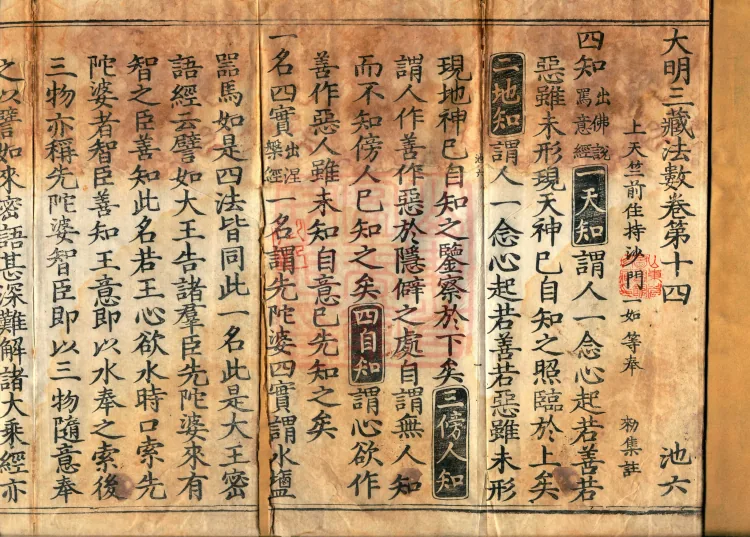 大明三藏法數卷第十四 池六
上天竺前住持沙門 如等奉 勑集註
四知出佛說罵意經一天知謂人一念心起若善若
惡雖未形現天神已自知之照臨於上矣
二地知謂人一念心起若善若惡雖未形
池六
現地神已自知之鑒察於下矣三傍人知
謂人作善作惡於隱僻之處自謂無人知
而不知傍人已知之矣四自知謂心欲作
善作惡人雖未知自意已先知之矣
一名四實出涅槃經一名謂先陀婆四實謂水鹽
噐馬如是四法皆同此一名此是大王密
語經云譬如大王告諸羣臣先陀婆來有
智之臣善知此名若王心欲水時口索先
陀婆者智臣善知王意即以水奉之索後
三物亦稱先陀婆智臣即以三物隨意奉
之以譬如來密語甚深難解諸大乘經亦